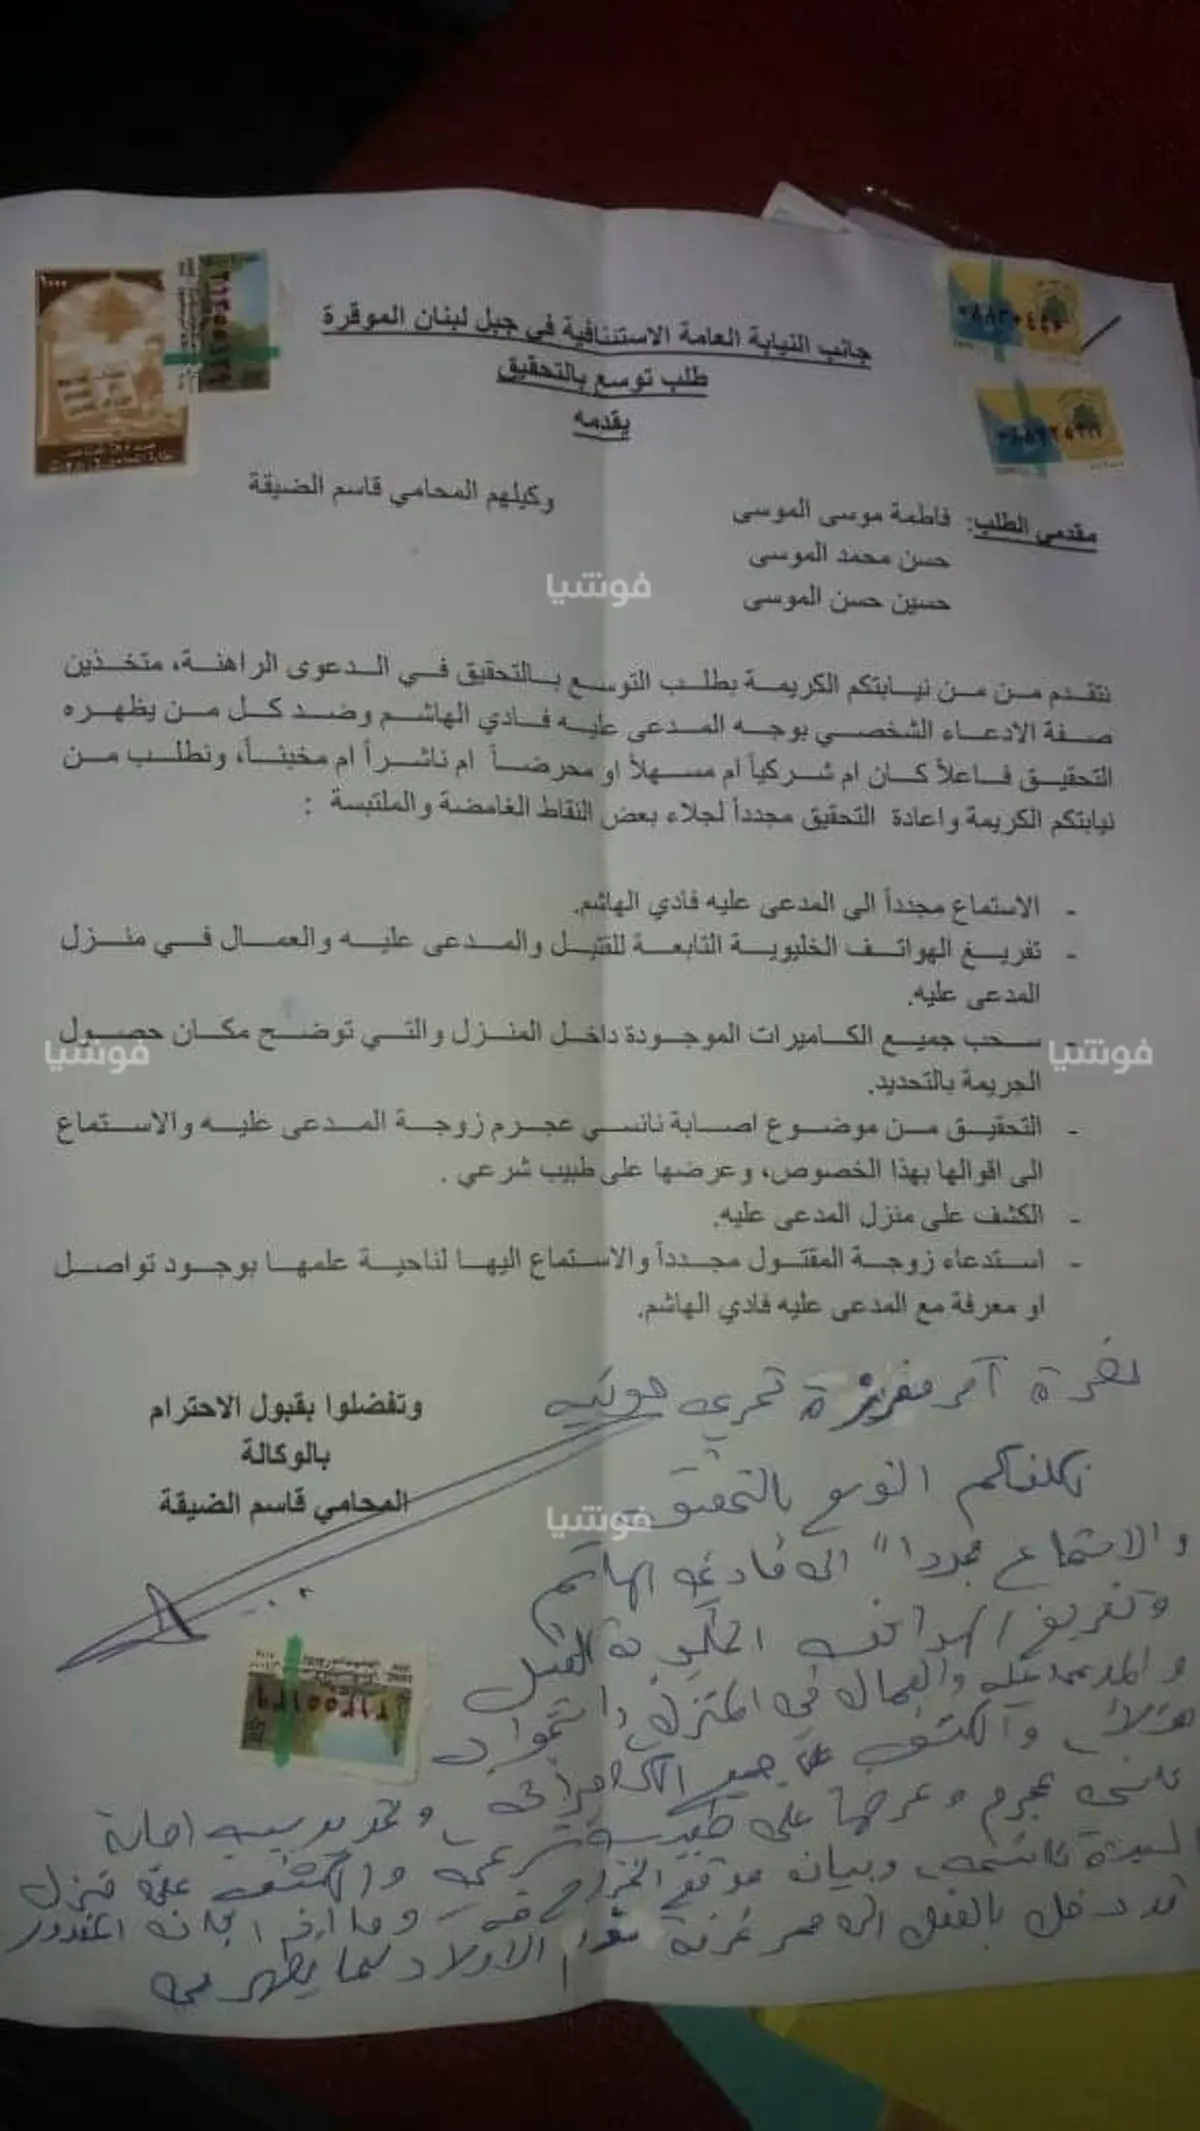 جانب النيابة العامة الاستئنافية في جبل لبنان الموقرة
طلب توسع بالتحقيق
يقدمه
مقدمي الطلب: فاطمة موسى الموسى
وكيلهم المحامي قاسم الضيقة
حسن محمد الموسى
حسين حسن الموسى
فوشيا
نتقدم من من نيابتكم الكريمة بطلب التوسع بالتحقيق في الدعوى الراهنة، متخذين
صفة الادعاء الشخصي بوجه المدعى عليه فادي الهاشم وضد كل من يظهره
التحقيق فاعلاً كان ام شركياً ام مسهلاً او محرضاً ام ناشراً ام مخبئاً، ونطلب من
نيابتكم الكريمة واعادة التحقيق مجدداً لجلاء بعض النقاط الغامضة والملتبسة :
- الاستماع مجدداً الى المدعى عليه فادي الهاشم.
- تفريغ الهواتف الخليوية التابعة للقتيل والمدعى عليه والعمال في منزل
المدعى عليه.
- سحب جميع الكاميرات الموجودة داخل المنزل والتي توضح مكان حصول
فوشيا
فوشيا
الجريمة بالتحديد.
- التحقيق من موضوع اصابة نانسي عجرم زوجة المدعى عليه والاستماع
الى اقوالها بهذا الخصوص، وعرضها على طبيب شرعي .
- الكشف على منزل المدعى عليه.
- استدعاء زوجة المقتول مجدداً والاستماع اليها لناحية علمها بوجود تواصل
او معرفة مع المدعى عليه فادي الهاشم.
وتفضلوا بقبول الاحترام
بالوكالة
المحامي قاسم الضيقة
حضرة آمر مفرزة تحري
نكلفكم التوسع بالتحقيق
فوشيا
والاستماع مجددا" الى فادي الهاشم
وتفريغ الهواتف الخليوية
والمدعى عليه والعمال في المنزل واستجواب
هؤلاء والكشف على جميع الكاميرات وتحديد سبب اصابة
نانسي عجرم وعرضها على طبيب شرعي والكشف على منزل
السيدة نانسي وبيان موقع
وما اذا كان المغدور
قد دخل بالفعل الى ممر غرفة نوم الاولاد